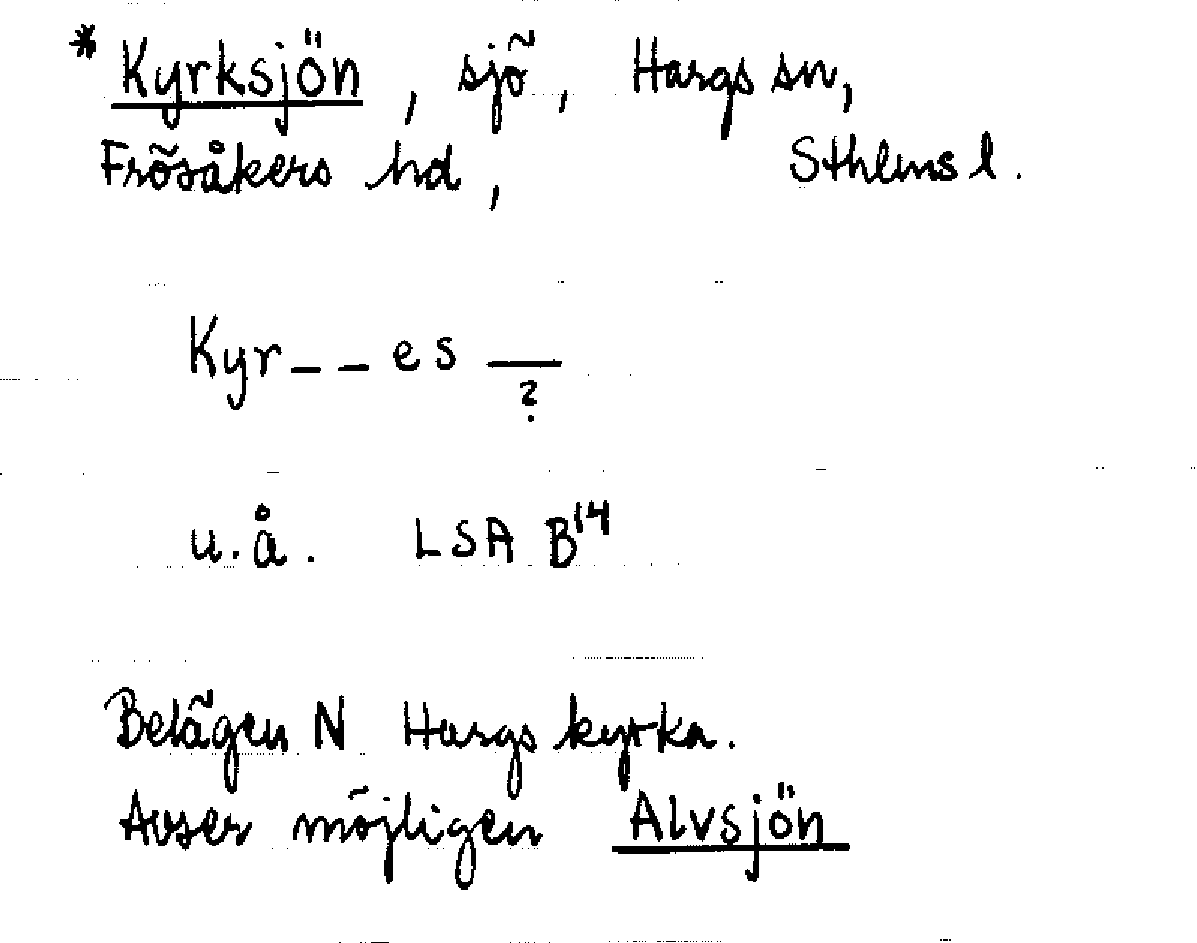 * Kyrksjön, sjö, Hargs sn,
Frösåkers hd, Sthlms l.
Kyr _ _ e s —
?
u.å. LSA B14
Belägen N Hargs kyrka.
Avser möjligen Alvsjön